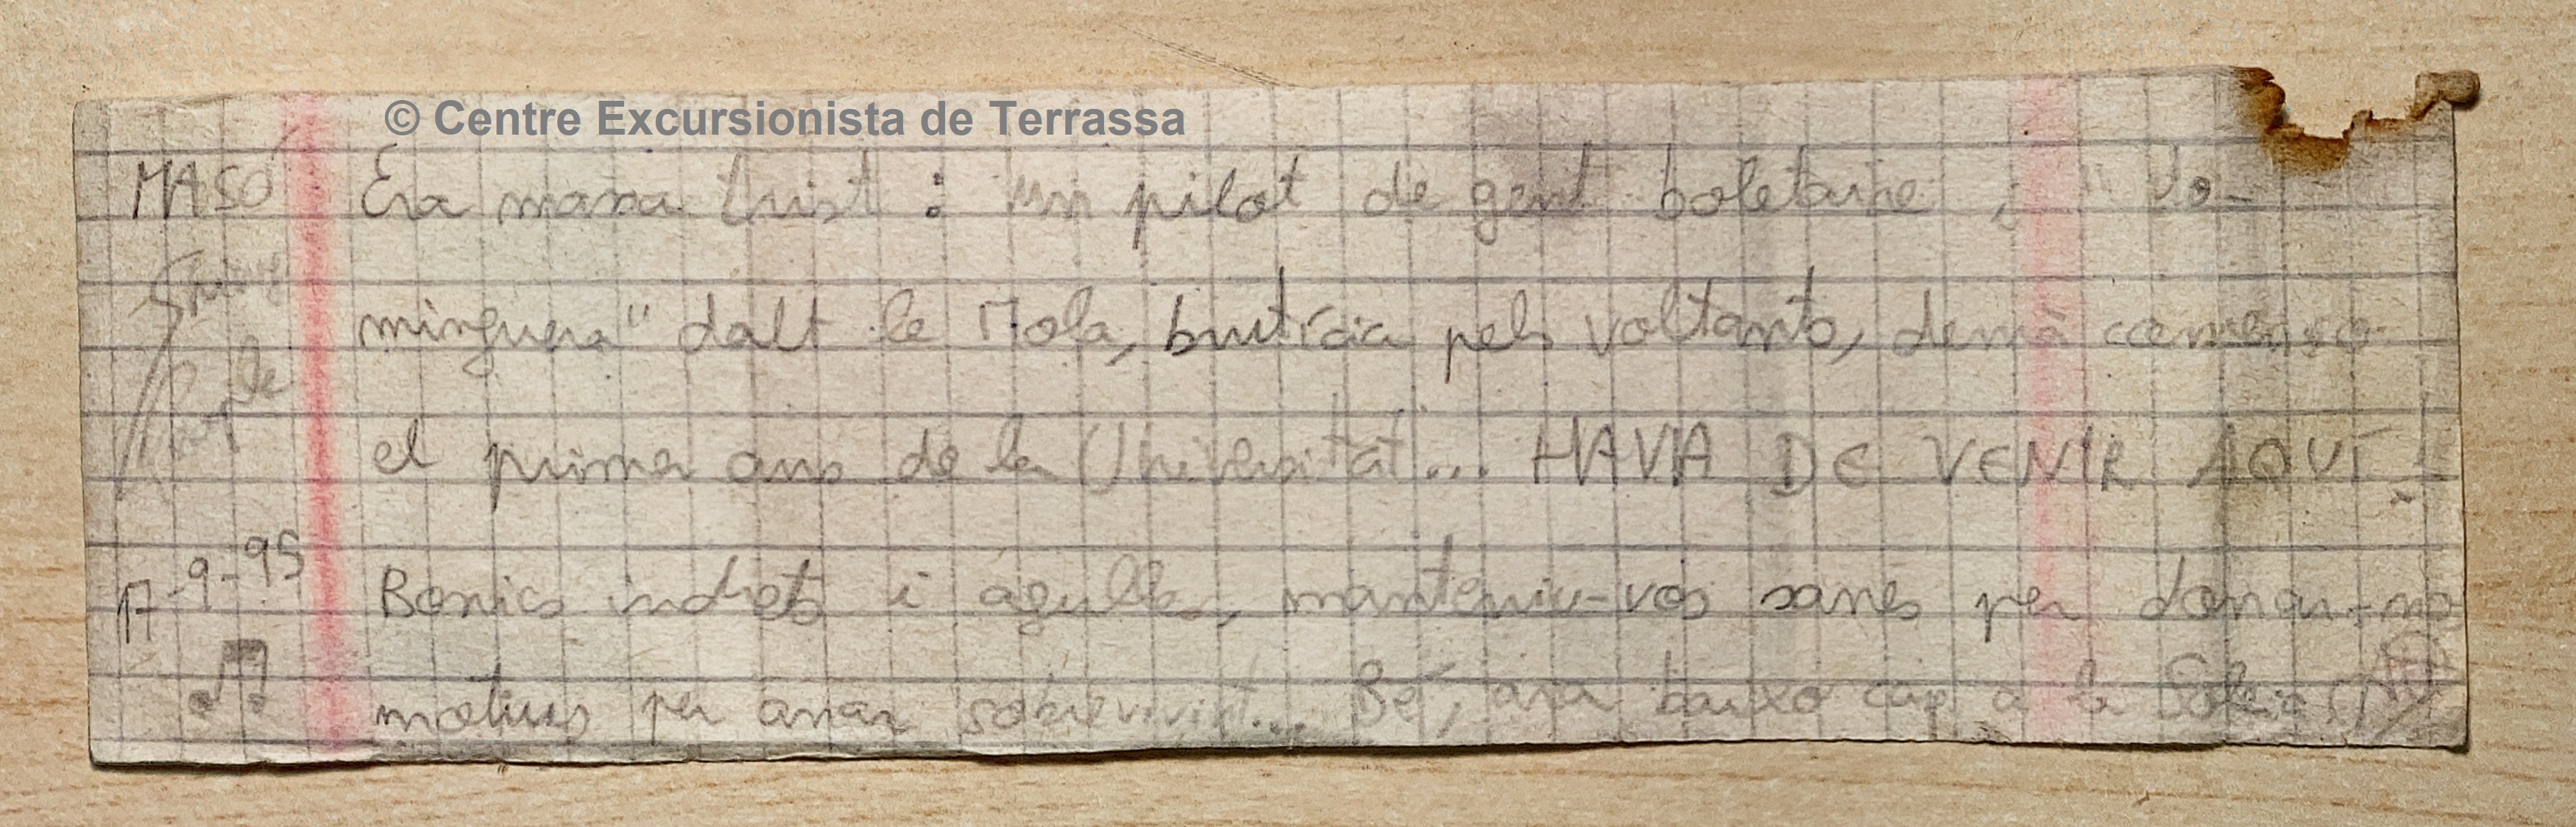 © Centre Excursionista de Terrassa
MASÓ Era massa trist: un pilot de gent boletaire, "do-
minguera" dalt la Mola, brutícia pels voltants, demà comença
el primer ans de la Universitat... HAVIA DE VENIR AQUÍ!
17-9-95 Bonics indrets i agulles, manteniu-vos sanes per donar-no
motius per anar sobrevivint... Bé, ara baixo cap a la